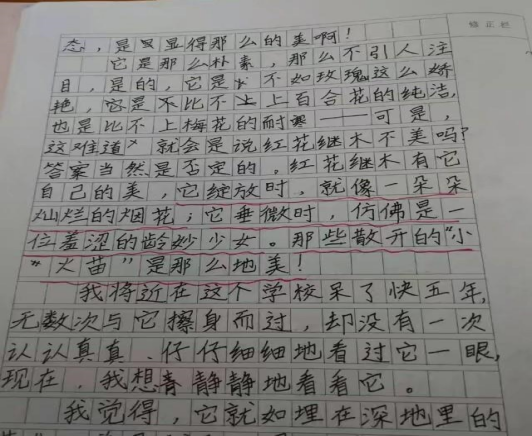 态，是显得那么的美啊！
它是那么朴素，那么不引人注
目，是的，它是不如玫瑰这么娇
艳，它是不比不上百合花的纯洁，
也是比不上梅花的耐寒——可是，
这难道就会是说红花继木不美吗？
答案当然是否定的。红花继木有它
自己的美，它绽放时，就像一朵朵
灿烂的烟花；它垂微时，仿佛是一
位羞涩的龄妙少女。那些散开的“小
“火苗”是那么地美！
我将近在这个学校呆了快五年，
无数次与它擦身而过，却没有一次
认认真真、仔仔细细地看过它一眼，
现在，我想静静地看看它。
我觉得，它就如埋在深地里的
矫正栏